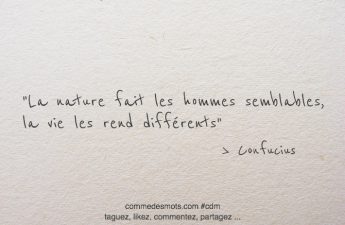 "La nature fait les hommes semblables,
la vie les rend différents"
> Confucius
commedesmots.com #cdm
taguez, likez, commentez, partagez ...